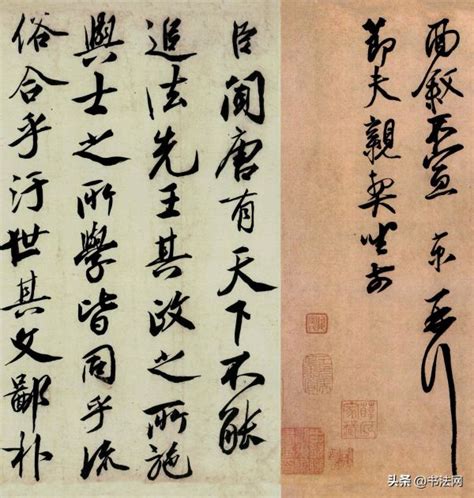 面敘不宣 京 再拜
節夫親契坐前
臣聞唐有天下不能
追法先王其政之所施
與士之所學皆同乎流
俗合乎汙世其文鄙朴
头条 @书法网